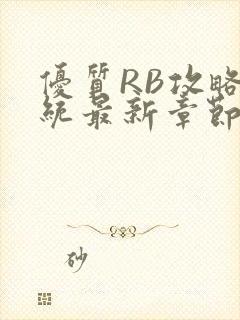 優質RB攻略
統最新章節
砂